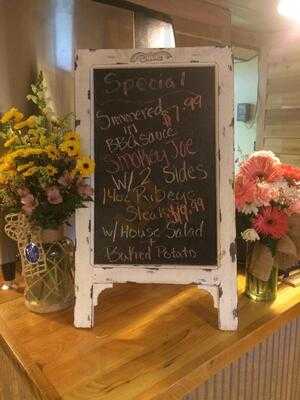 Special
Simmered $7.99
in
BBQ sauce
Smokey Joe
w/ 2 Sides
14oz Ribeye
Steak $19.99
w/ House Salad
+
Baked Potato